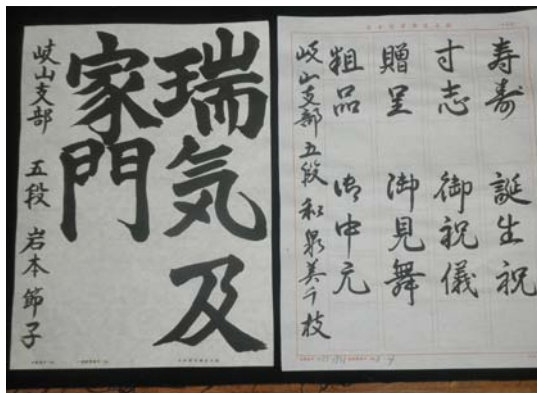 寿寿 誕生祝
寸志 御祝儀
贈呈 御見舞
粗品 御中元
岐山支部 五段 和泉美千枝
瑞気及
家門
岐山支部 五段 岩本節子